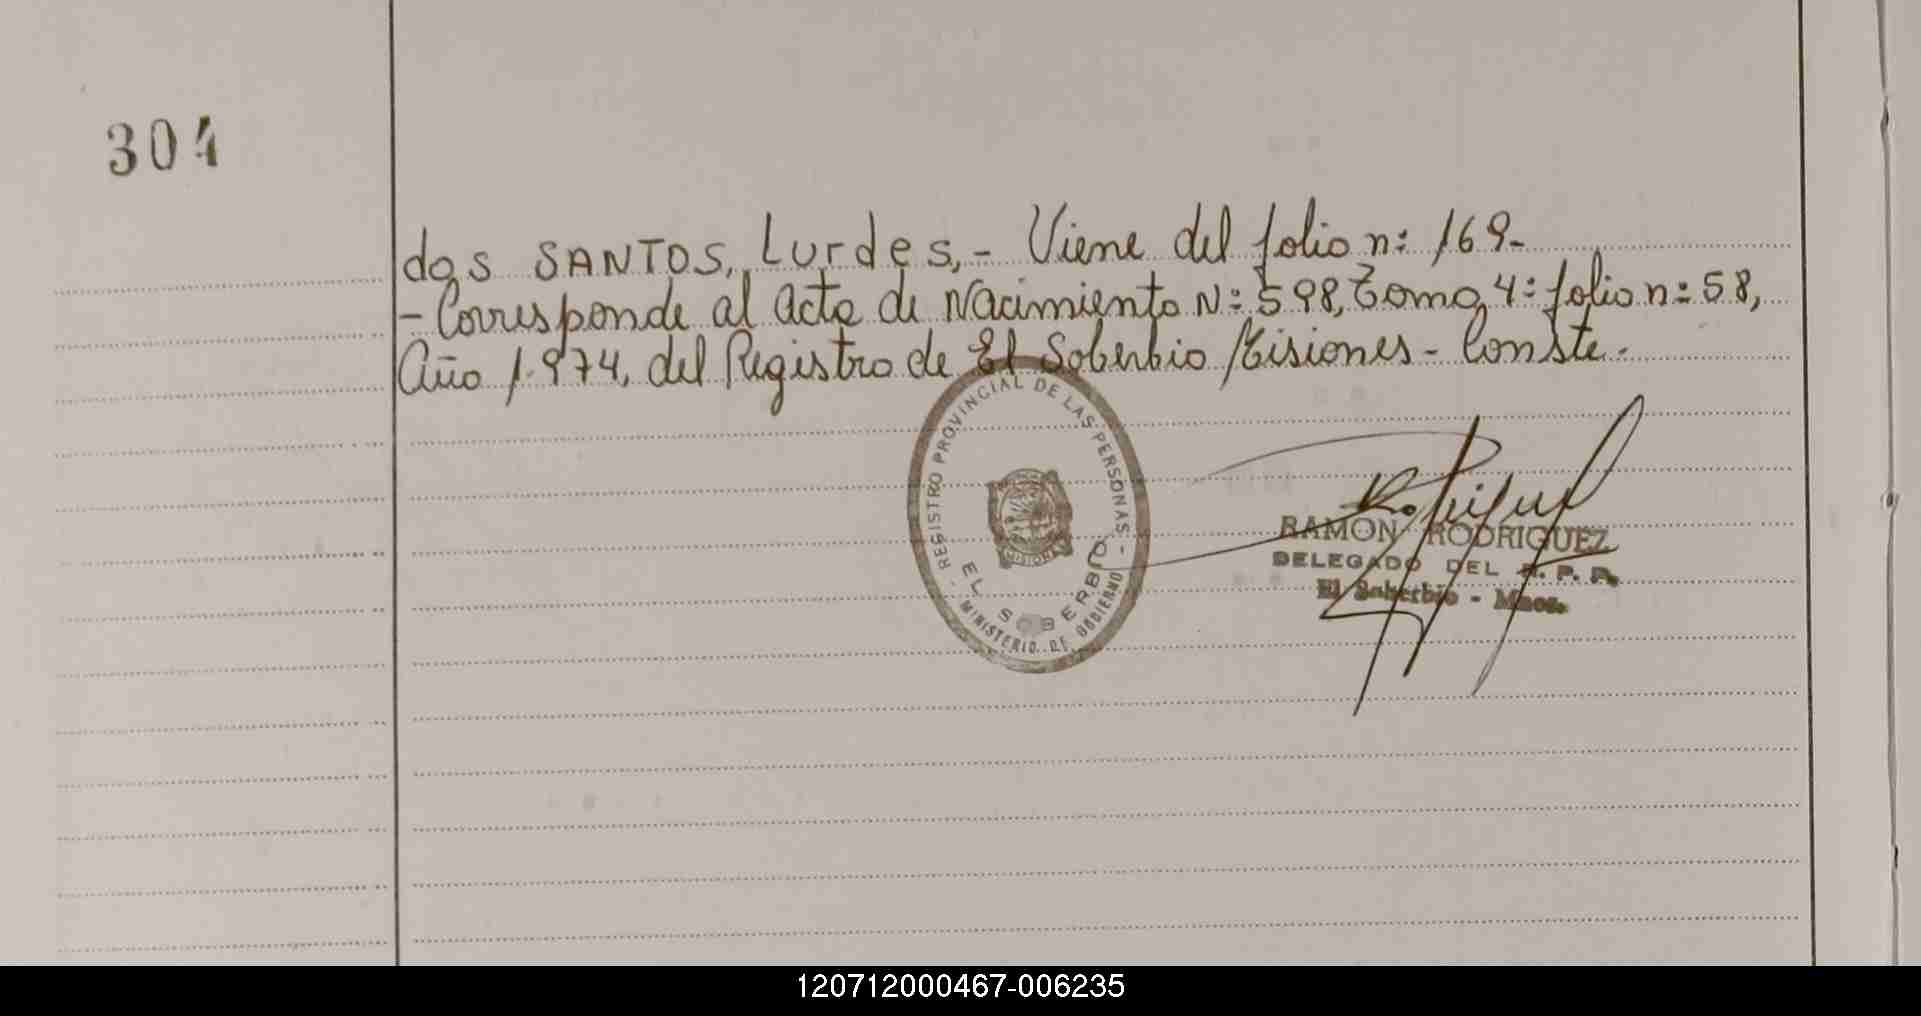 304
dos SANTOS, Lurdes,- Viene del folio n: 169-
- Corresponde al acta de Nacimiento N: 598, Tomo, 4: folio n: 58,
Año 1.974, del Registro de El Soberbio Misiones - Conste.
- REGISTRO PROVINCIAL DE LAS PERSONAS -
MISIONES
EL SOBERBIO
MINISTERIO DE GOBIERNO
RAMON RODRIGUEZ
DELEGADO DEL R. P. P.
El Soberbio - Mnes.
120712000467-006235